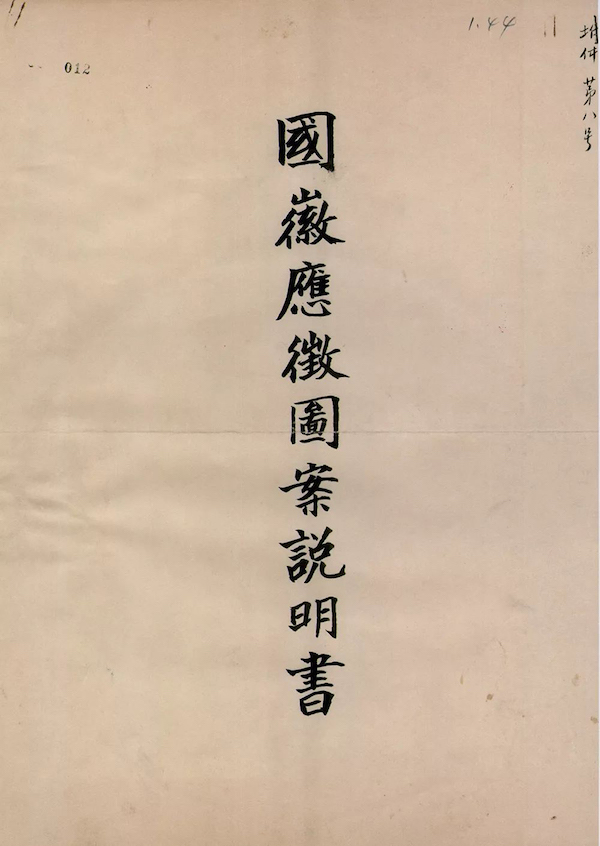 1.44
012
第八号
國徽應徵圖案説明書